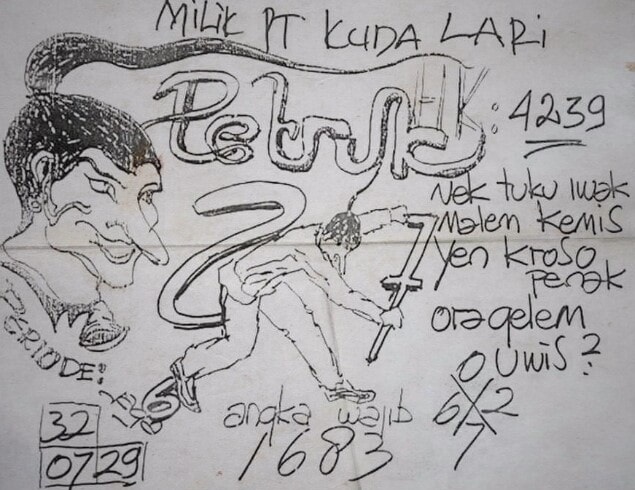 MILIK PT KUDA LARI
Petruk
HK: 4239
Nek tuku iwak
malem kemis
yen kroso
penak
oragelem
uwis?
2
1
PERIODE:
32
0729
angka wajib
1683
0
6X2
7